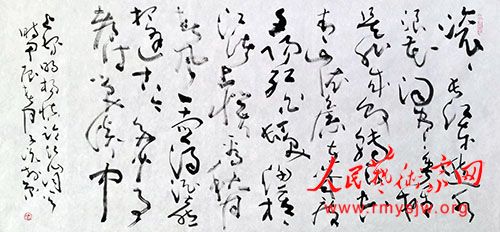 滚滚长江东逝水
浪花淘尽英雄
是非成败转头空
青山依旧在几度
夕阳红白发渔樵
江渚上惯看秋月
春风一壶浊酒喜
相逢古今多少事
都付笑谈中
人民藝術家网
www.rmysjw.org